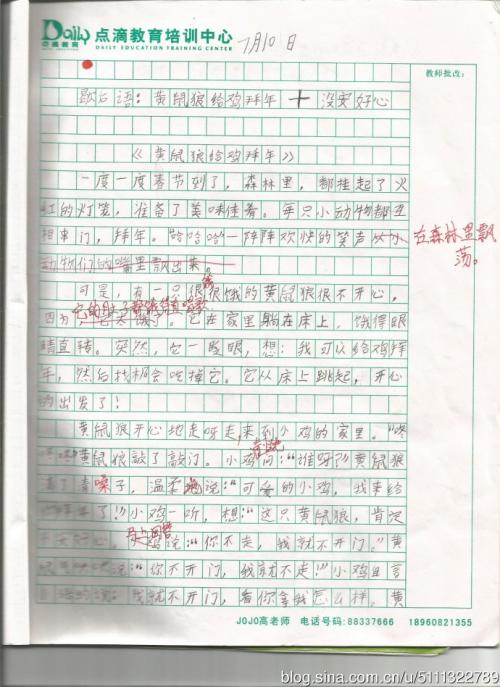 Daily 点滴教育
点滴教育培训中心
DAILY EDUCATION TRAINING CENTER
7月10日
教师批改:
歇后语:黄鼠狼给鸡拜年 十 没安好心
《黄鼠狼给鸡拜年》
一度一度春节到了,森林里,都挂起了火
红的灯笼,准备了美味佳肴。每只小动物都互
相串门,拜年。哈哈哈一阵阵欢快的笑声从小
在森林里飘荡。
动物们的嘴里飘出来。
可是,有一只很饿的黄鼠狼很不开心,
它的肚子
因为,它太饿了。它在家里躺在床上,饿得眼
睛直转。突然,它一眨眼,想:我可以给鸡拜
年,然后找机会吃掉它。它从床上跳起,开心
的出发了!
黄鼠狼开心地走呀走,来到小鸡的家里。“咚
黄鼠狼敲了敲门。小鸡问:“谁呀?”黄鼠狼
清了清嗓子,温柔地说:“可爱的小鸡,我来给
拜年了!”小鸡一听,想:“这只黄鼠狼,肯定
不安好心。”马上回答说:“你不走,我就不开门。”黄
说:“你不开门,我就不走!”小鸡自言
自语的说:我就不开门,看你拿我怎么样。黄
JOJO高老师 电话号码:88337666 18960821355
blog.sina.com.cn/u/5111322789